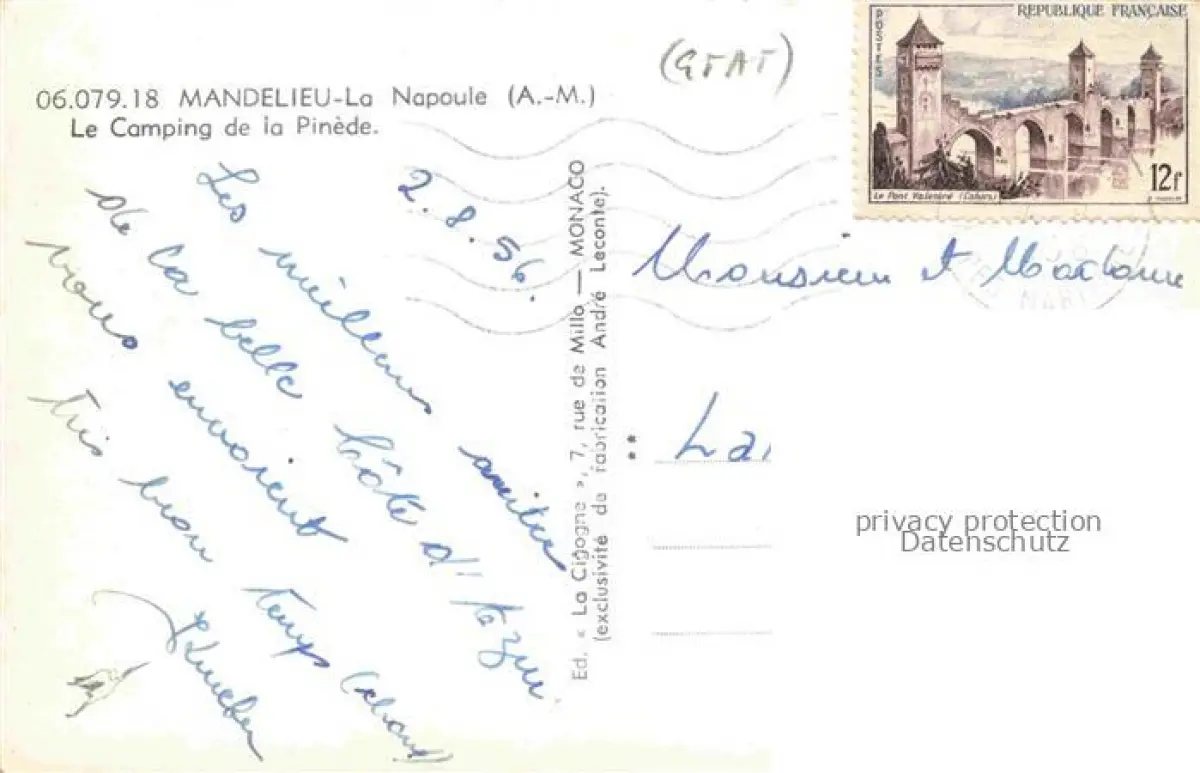 RÉPUBLIQUE FRANÇAISE
POSTES
12f
Le Pont Valentré (Cahors)
(GFAT)
06.079.18 MANDELIEU-La Napoule (A.-M.)
Le Camping de la Pinède.
2.8.56.
Les meilleurs amitiés
de la belle Côte d'Azur
vous envoient
très beau temps (chaud)
Ed. « La Cigogne », 7, rue de Millo — MONACO
(exclusivité de fabrication André Leconte).
Monsieur et Madame
La
privacy protection
Datenschutz